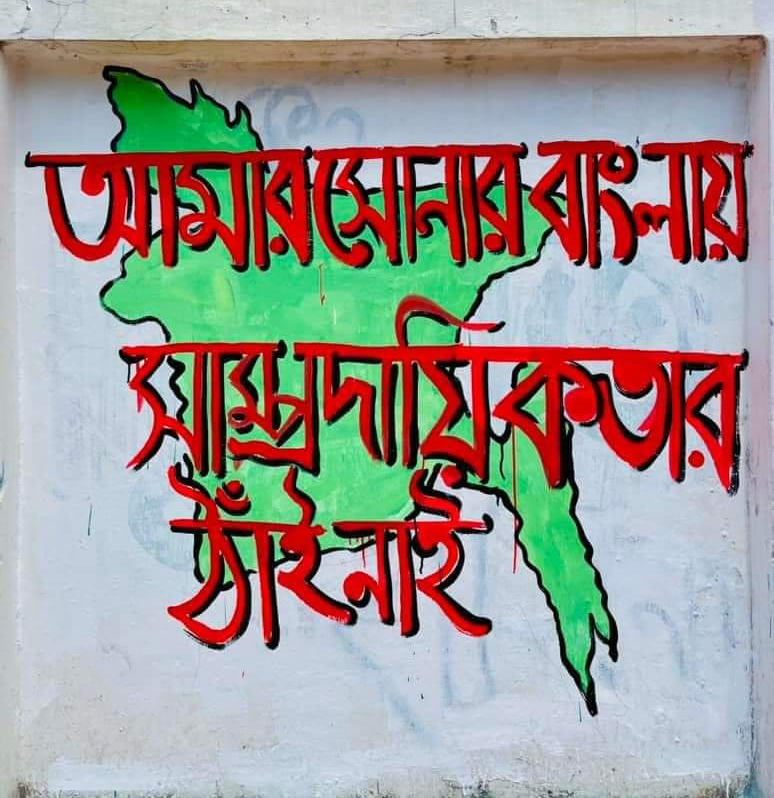 আমার সোনার বাংলায়
সাম্প্রদায়িকতার
ঠাঁই নাই